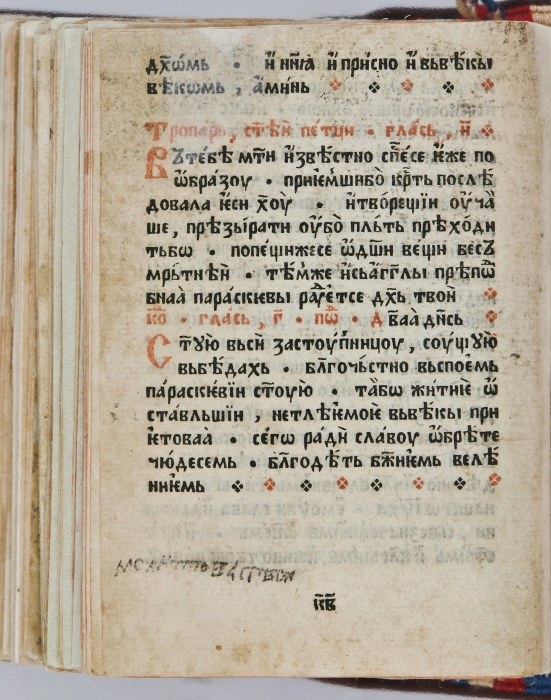 дх҃ѡмь • и҆ нн҃ꙗ и҆ присно и҆ вьвѣкы
вѣкѡмь , а҆минь
Тропарь, ст҃ѣи пе́тци • гла́сь , и҃
Въ тебѣ мт҃и и҆звѣстно сп҃се́се ѥ҆же по
ѡ҆бра́зоу • прїе́мшибо̀ кр҃ть послѣ
довала ѥ҆си хо҃у • и҆ тво́рещїи оу҆ча̀
ше, прѣзы́рати оу҆бо̀ пльть прѣхо́ди
тьбо • попещи́жесе ѡ҆ дш҃и ве́щи бесъ
мрь́тнѣи • тѣ́мже и҆сьа҆́гг҃лы прѣпⷣѡ
бнаа̀ параскїевы ра́ⷣуетсе дх҃ь твои
коⷣ • гла́сь , г҃ • поⷣ • дв҃аа дн҃сь
Ст҃ую вьси застоупницоу , соущꙋю̀
вьбѣ́дахь • бл҃гоче́стно вьспоѥ́мь
параскїе́вїи ст҃оую • та́бо житиѥ ѡ҆
ста́вльшїи , нетлѣ́ѥмоѥ вьвѣ́кы при
ѥ҆товаа • се́гѡ ра́ди сла́воу ѡ҆брѣ́те
чюдесемь • бл҃годѣть бж҃иѥмь велѣ́
ниѥмь
к҃в